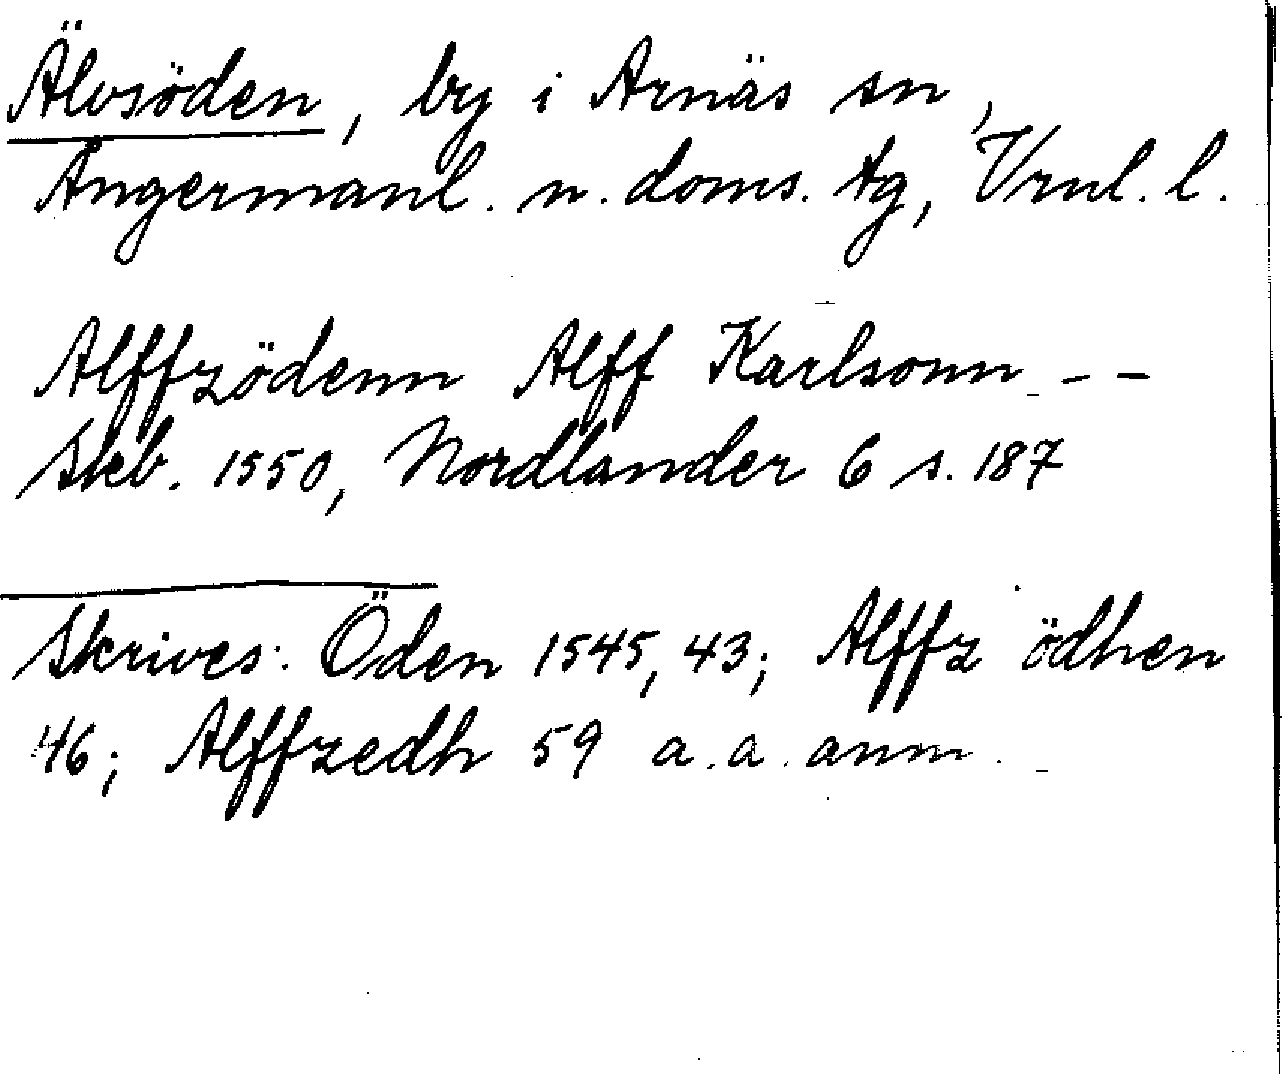 Älvsöden, by i Arnäs sn,
Ångermanl. n. doms. tg, Vrnl. l.
Alffzödenn Alff Karlsonn - -
Skb. 1550, Nordlander 6 s. 187
Skrives: Öden 1545, 43; Alffz ödhen
46; Alffzedh 59 a.a. anm.